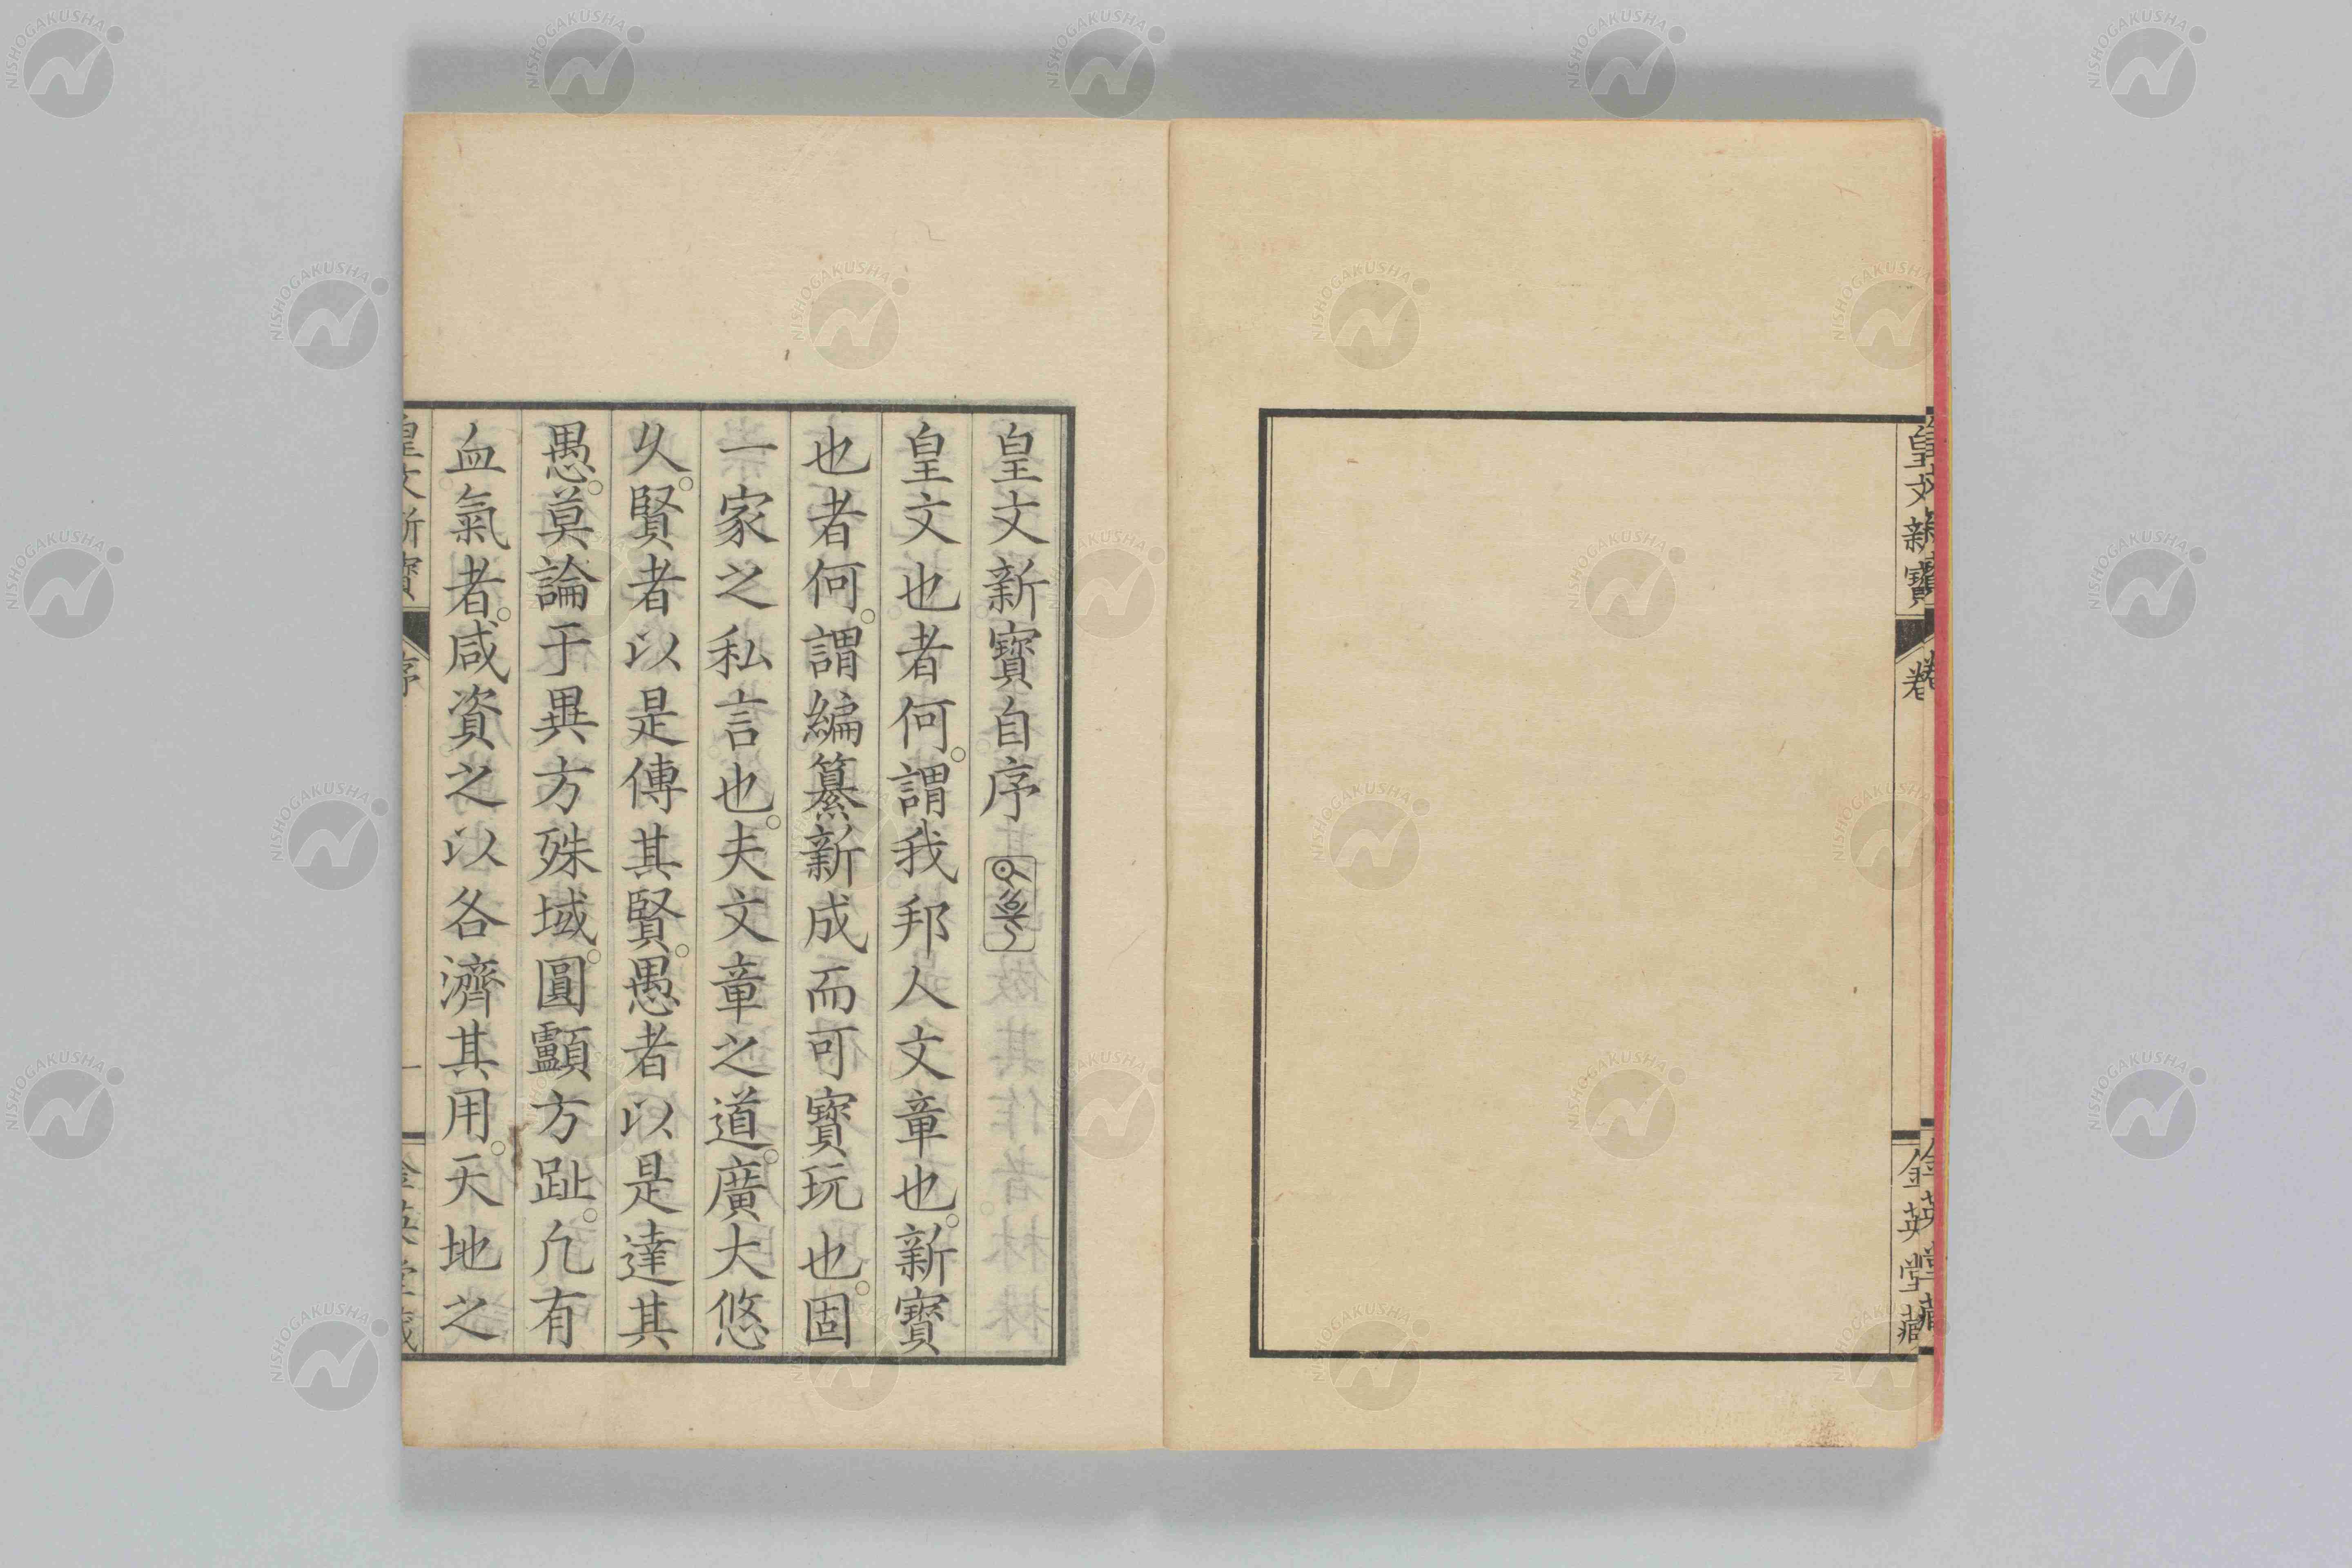 皇文新寶
卷
金英堂藏
皇文新寶自序
皇文也者何。謂我邦人文章也。新寶
也者何。謂編纂新成而可寶玩也。固
一家之私言也。夫文章之道。廣大悠
久。賢者以是傳其賢。愚者以是達其
愚。莫論于異方殊域。圓顱方趾。凡有
血氣者。咸資之以各濟其用。天地之
皇文新寶
序
一
金英堂藏
NISHOGAKUSHA